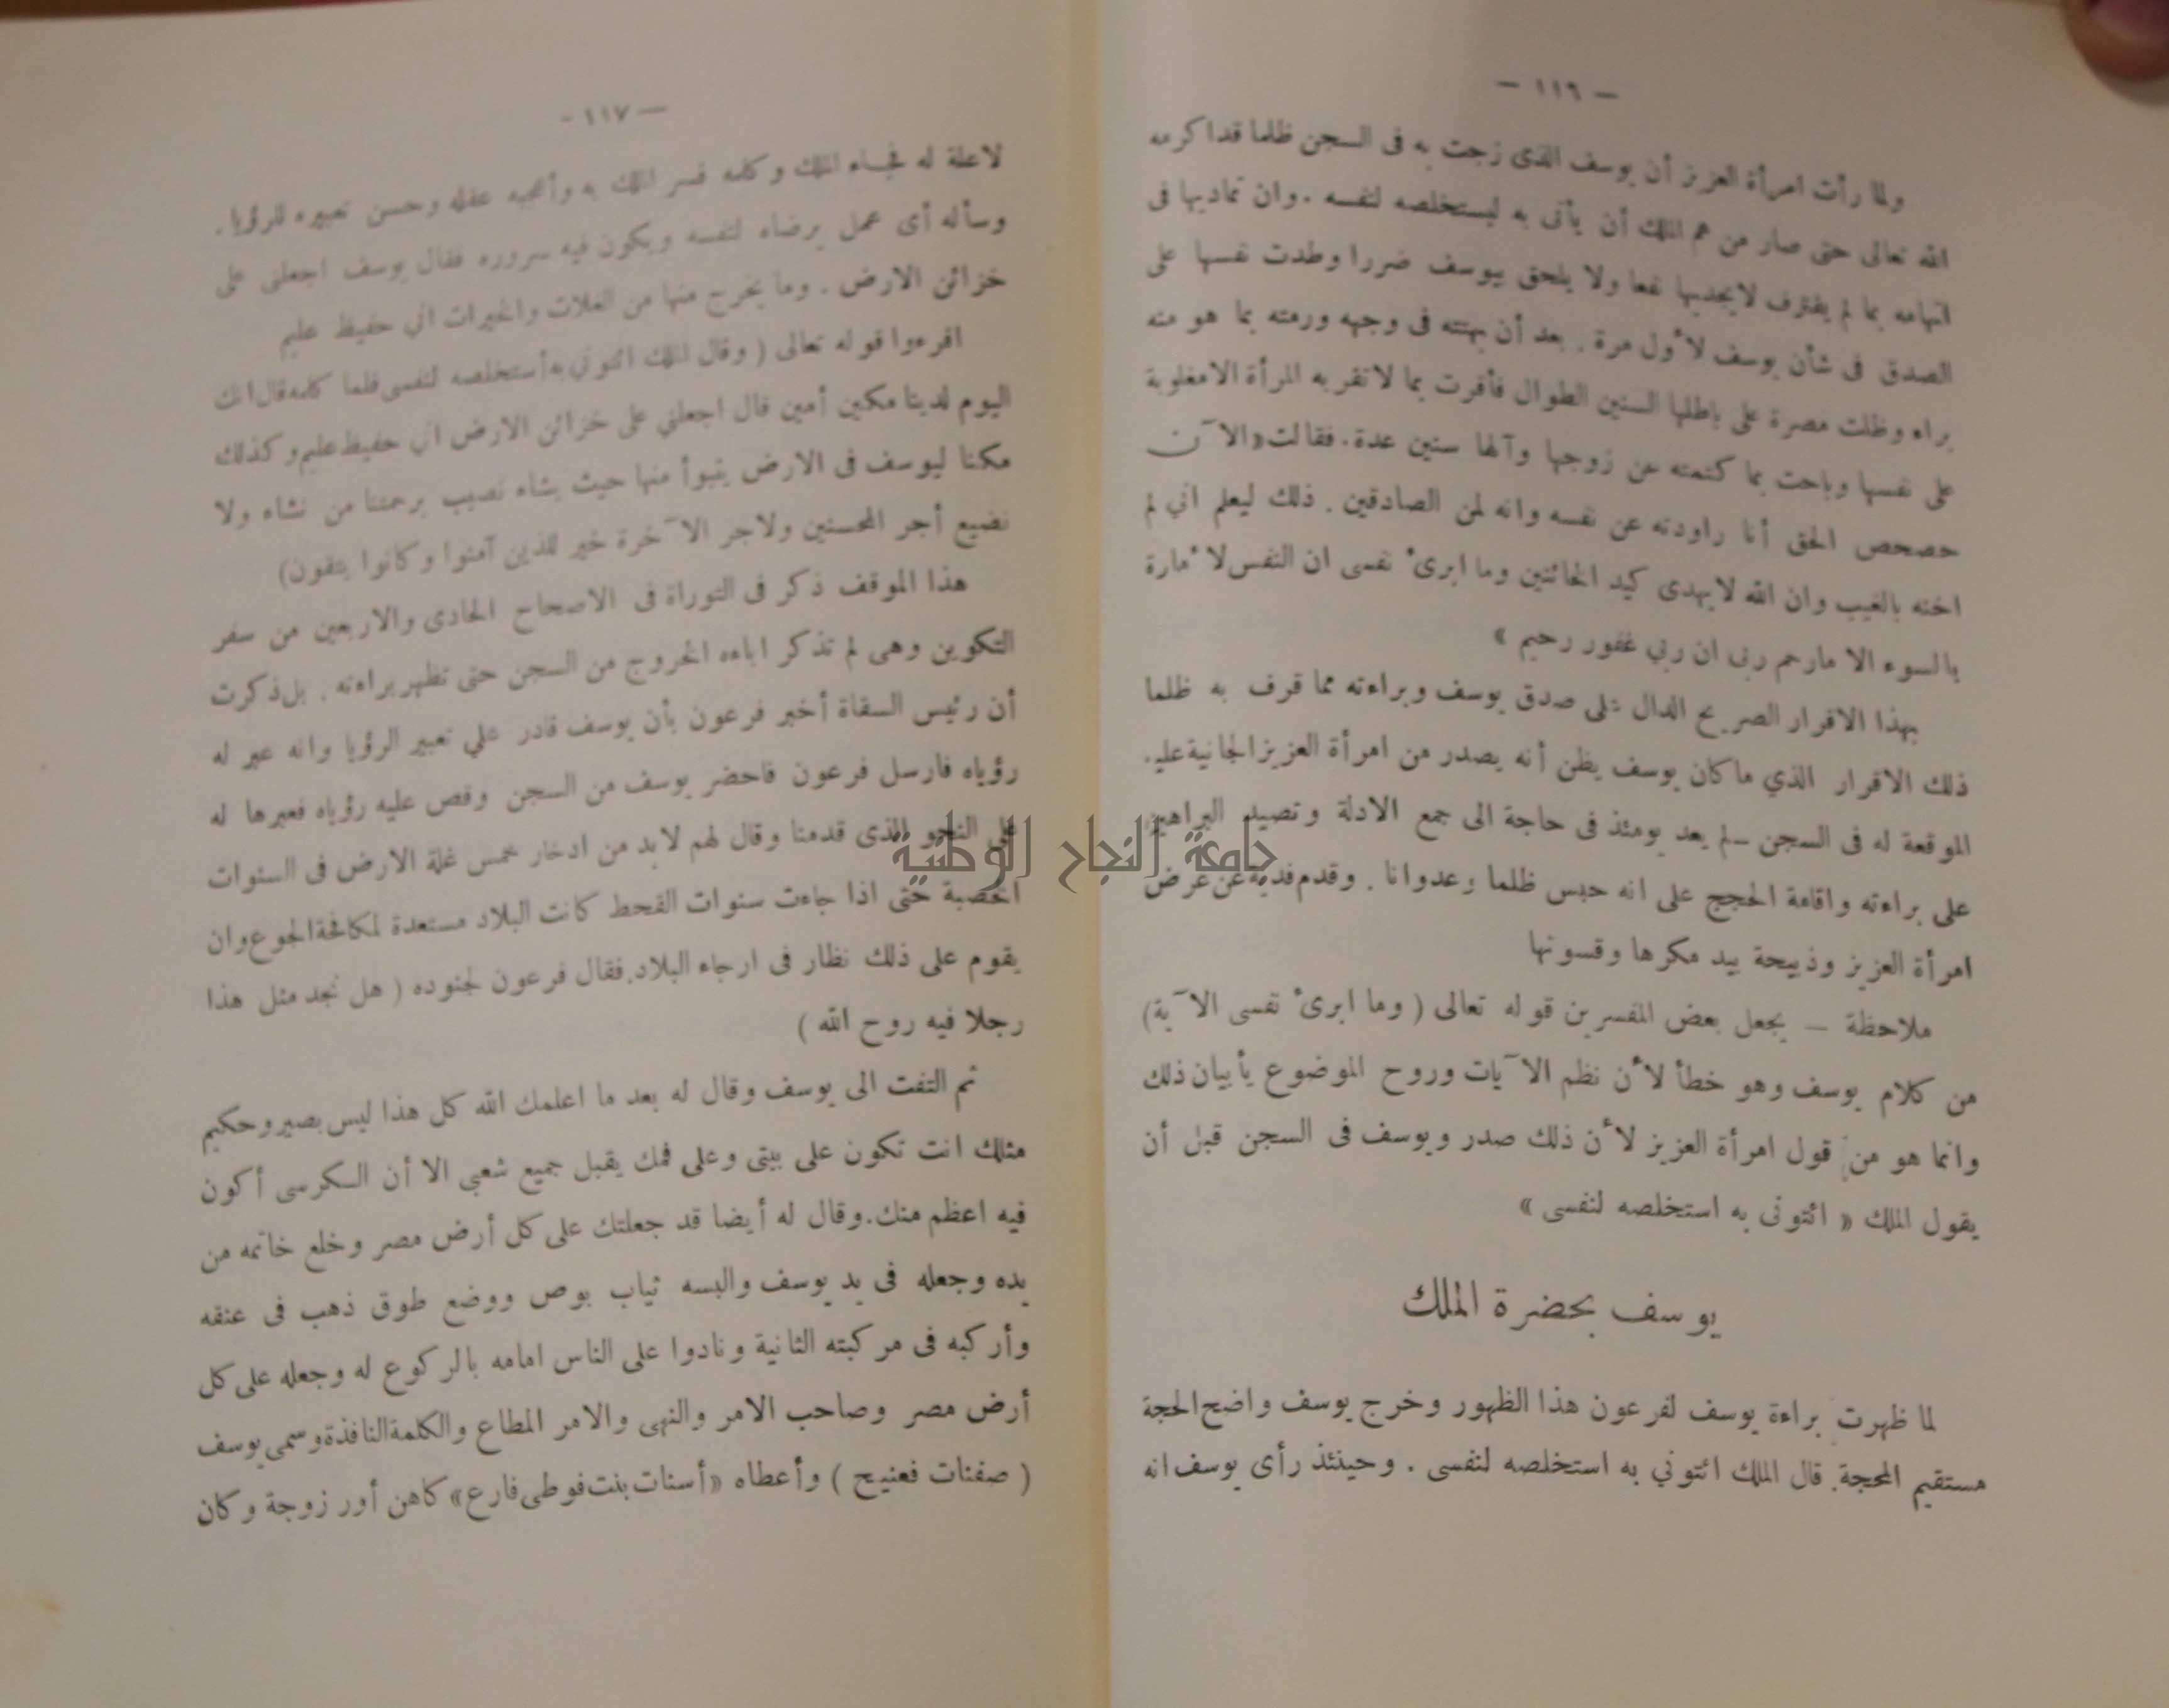 — ١١٦ —
ولما رأت امرأة العزيز أن يوسف الذى زجت به فى السجن ظلما قد اكرمه
الله تعالى حتى صار من هم الملك أن يأتى به ليستخلصه لنفسه . وان تماديها فى
اتهامه بما لم يقترف لايجديها نفعا ولا يلحق بيوسف ضررا وطدت نفسها على
الصدق فى شأن يوسف لأول مرة . بعد أن بهتته فى وجهه ورمته بما هو منه
براء وظلت مصرة على باطلها السنين الطوال فأقرت بما لاتقر به المرأة الا مغلوبة
على نفسها وباحت بما كتمته عن زوجها وآلها سنين عدة . فقالت « الآن
حصحص الحق أنا راودته عن نفسه وانه لمن الصادقين . ذلك ليعلم اني لم
اخنه بالغيب وان الله لايهدى كيد الخائنين وما ابرىء نفسى ان النفس لأمارة
بالسوء الا مارحم ربى ان ربي غفور رحيم »
بهذا الاقرار الصريح الدال على صدق يوسف وبراءته مما قرف به ظلما
ذلك الاقرار الذي ماكان يوسف يظن أنه يصدر من امرأة العزيز الجانية عليه
الموقعة له فى السجن — لم يعد يومئذ فى حاجة الى جمع الادلة وتصيد البراهين
على براءته واقامة الحجج على انه حبس ظلما وعدوانا . وقدم فدية عن عرض
امرأة العزيز وذبيحة بيد مكرها وقسوتها
ملاحظة — يجعل بعض المفسرين قوله تعالى ( وما ابرىء نفسى الآية )
من كلام يوسف وهو خطأ لأن نظم الآيات وروح الموضوع يأبيان ذلك
وانما هو من قول امرأة العزيز لأن ذلك صدر ويوسف فى السجن قبل أن
يقول الملك « ائتونى به استخلصه لنفسى »
يوسف بحضرة الملك
لما ظهرت براءة يوسف لفرعون هذا الظهور وخرج يوسف واضح الحجة
مستقيم المحجة . قال الملك ائتوني به استخلصه لنفسى . وحينئذ رأى يوسف انه
— ١١٧ -
لاعلة له فجاء الملك وكلمه فسر الملك به وأعجبه عقله وحسن تعبيره للرؤيا .
وسأله أى عمل يرضاه لنفسه ويكون فيه سروره فقال يوسف اجعلنى على
خزائن الارض . وما يخرج منها من الغلات والخيرات اني حفيظ عليم
اقرءوا قوله تعالى ( وقال الملك ائتوني به أستخلصه لنفسى فلما كلمه قال انك
اليوم لدينا مكين أمين قال اجعلني على خزائن الارض اني حفيظ عليم وكذلك
مكنا ليوسف فى الارض يتبوأ منها حيث يشاء نصيب برحمتنا من نشاء ولا
نضيع أجر المحسنين ولاجر الآخرة خير للذين آمنوا وكانوا يتقون)
هذا الموقف ذكر فى التوراة فى الاصحاح الحادى والاربعين من سفر
التكوين وهى لم تذكر اباءه الخروج من السجن حتى تظهر براءته . بل ذكرت
أن رئيس السقاة أخبر فرعون بأن يوسف قادر علي تعبير الرؤيا وانه عبر له
رؤياه فارسل فرعون فاحضر يوسف من السجن وقص عليه رؤياه فعبرها له
على النحو الذى قدمنا وقال لهم لابد من ادخار خمس غلة الارض فى السنوات
الخصبة حتى اذا جاءت سنوات القحط كانت البلاد مستعدة لمكافحة الجوع وان
يقوم على ذلك نظار فى ارجاء البلاد . فقال فرعون لجنوده ( هل نجد مثل هذا
رجلا فيه روح الله )
ثم التفت الى يوسف وقال له بعد ما اعلمك الله كل هذا ليس بصير وحكيم
مثلك انت تكون على بيتى وعلى فمك يقبل جميع شعبى الا أن الكرسى أكون
فيه اعظم منك . وقال له أيضا قد جعلتك على كل أرض مصر وخلع خاتمه من
يده وجعله فى يد يوسف والبسه ثياب بوص ووضع طوق ذهب فى عنقه
وأركبه فى مركبته الثانية ونادوا على الناس امامه بالركوع له وجعله على كل
أرض مصر وصاحب الامر والنهى والامر المطاع والكلمة النافذة وسمى يوسف
( صفنات فعنيح ) وأعطاه « أسنات بنت فوطى فارع » كاهن أور زوجة وكان
جامعة النجاح الوطنية